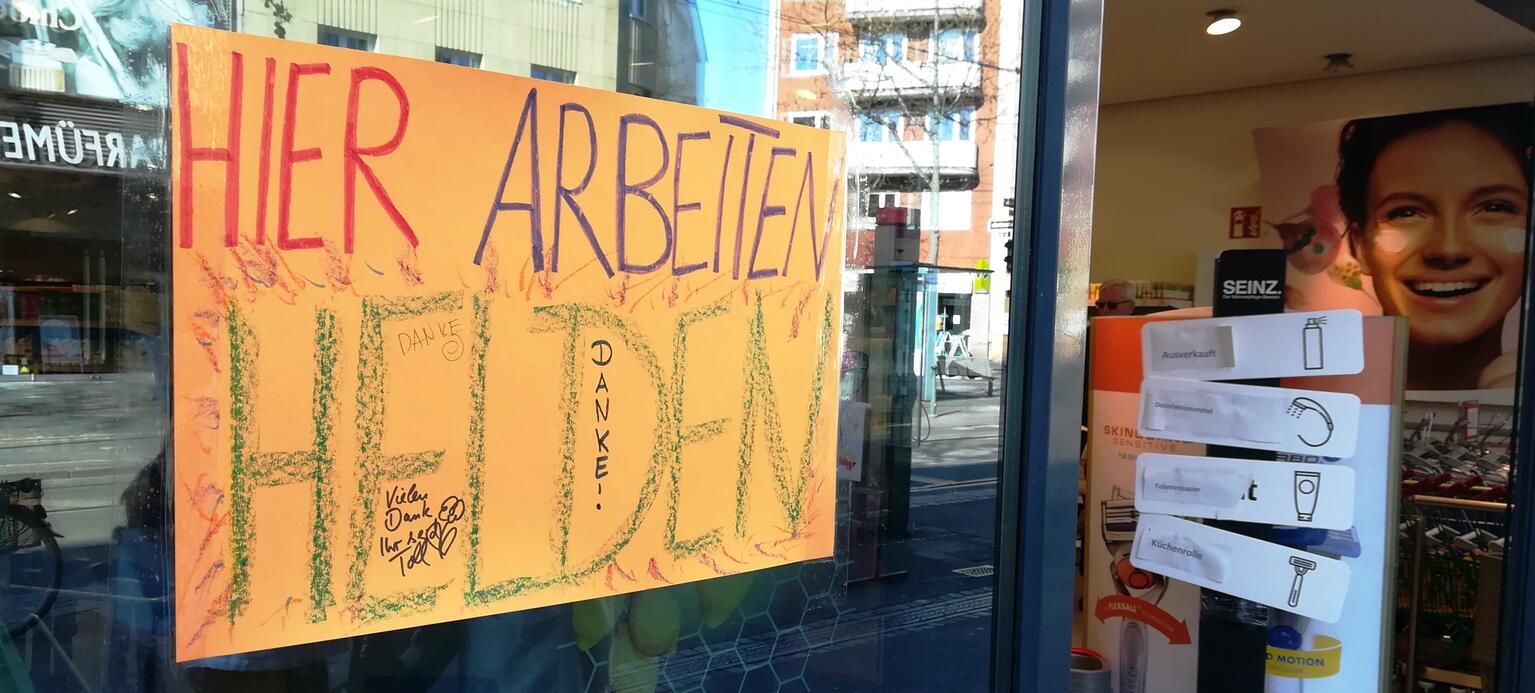 HIER ARBEITEN
HELDEN
DANKE
DANKE!
Vielen
Dank
Ihr seid
Toll
ARFÜME
SEINZ.
Ausverkauft
Desinfektionsmittel
Toilettenpapier
Küchenrolle
SENSITIVE
FLEXBALL
D MOTION